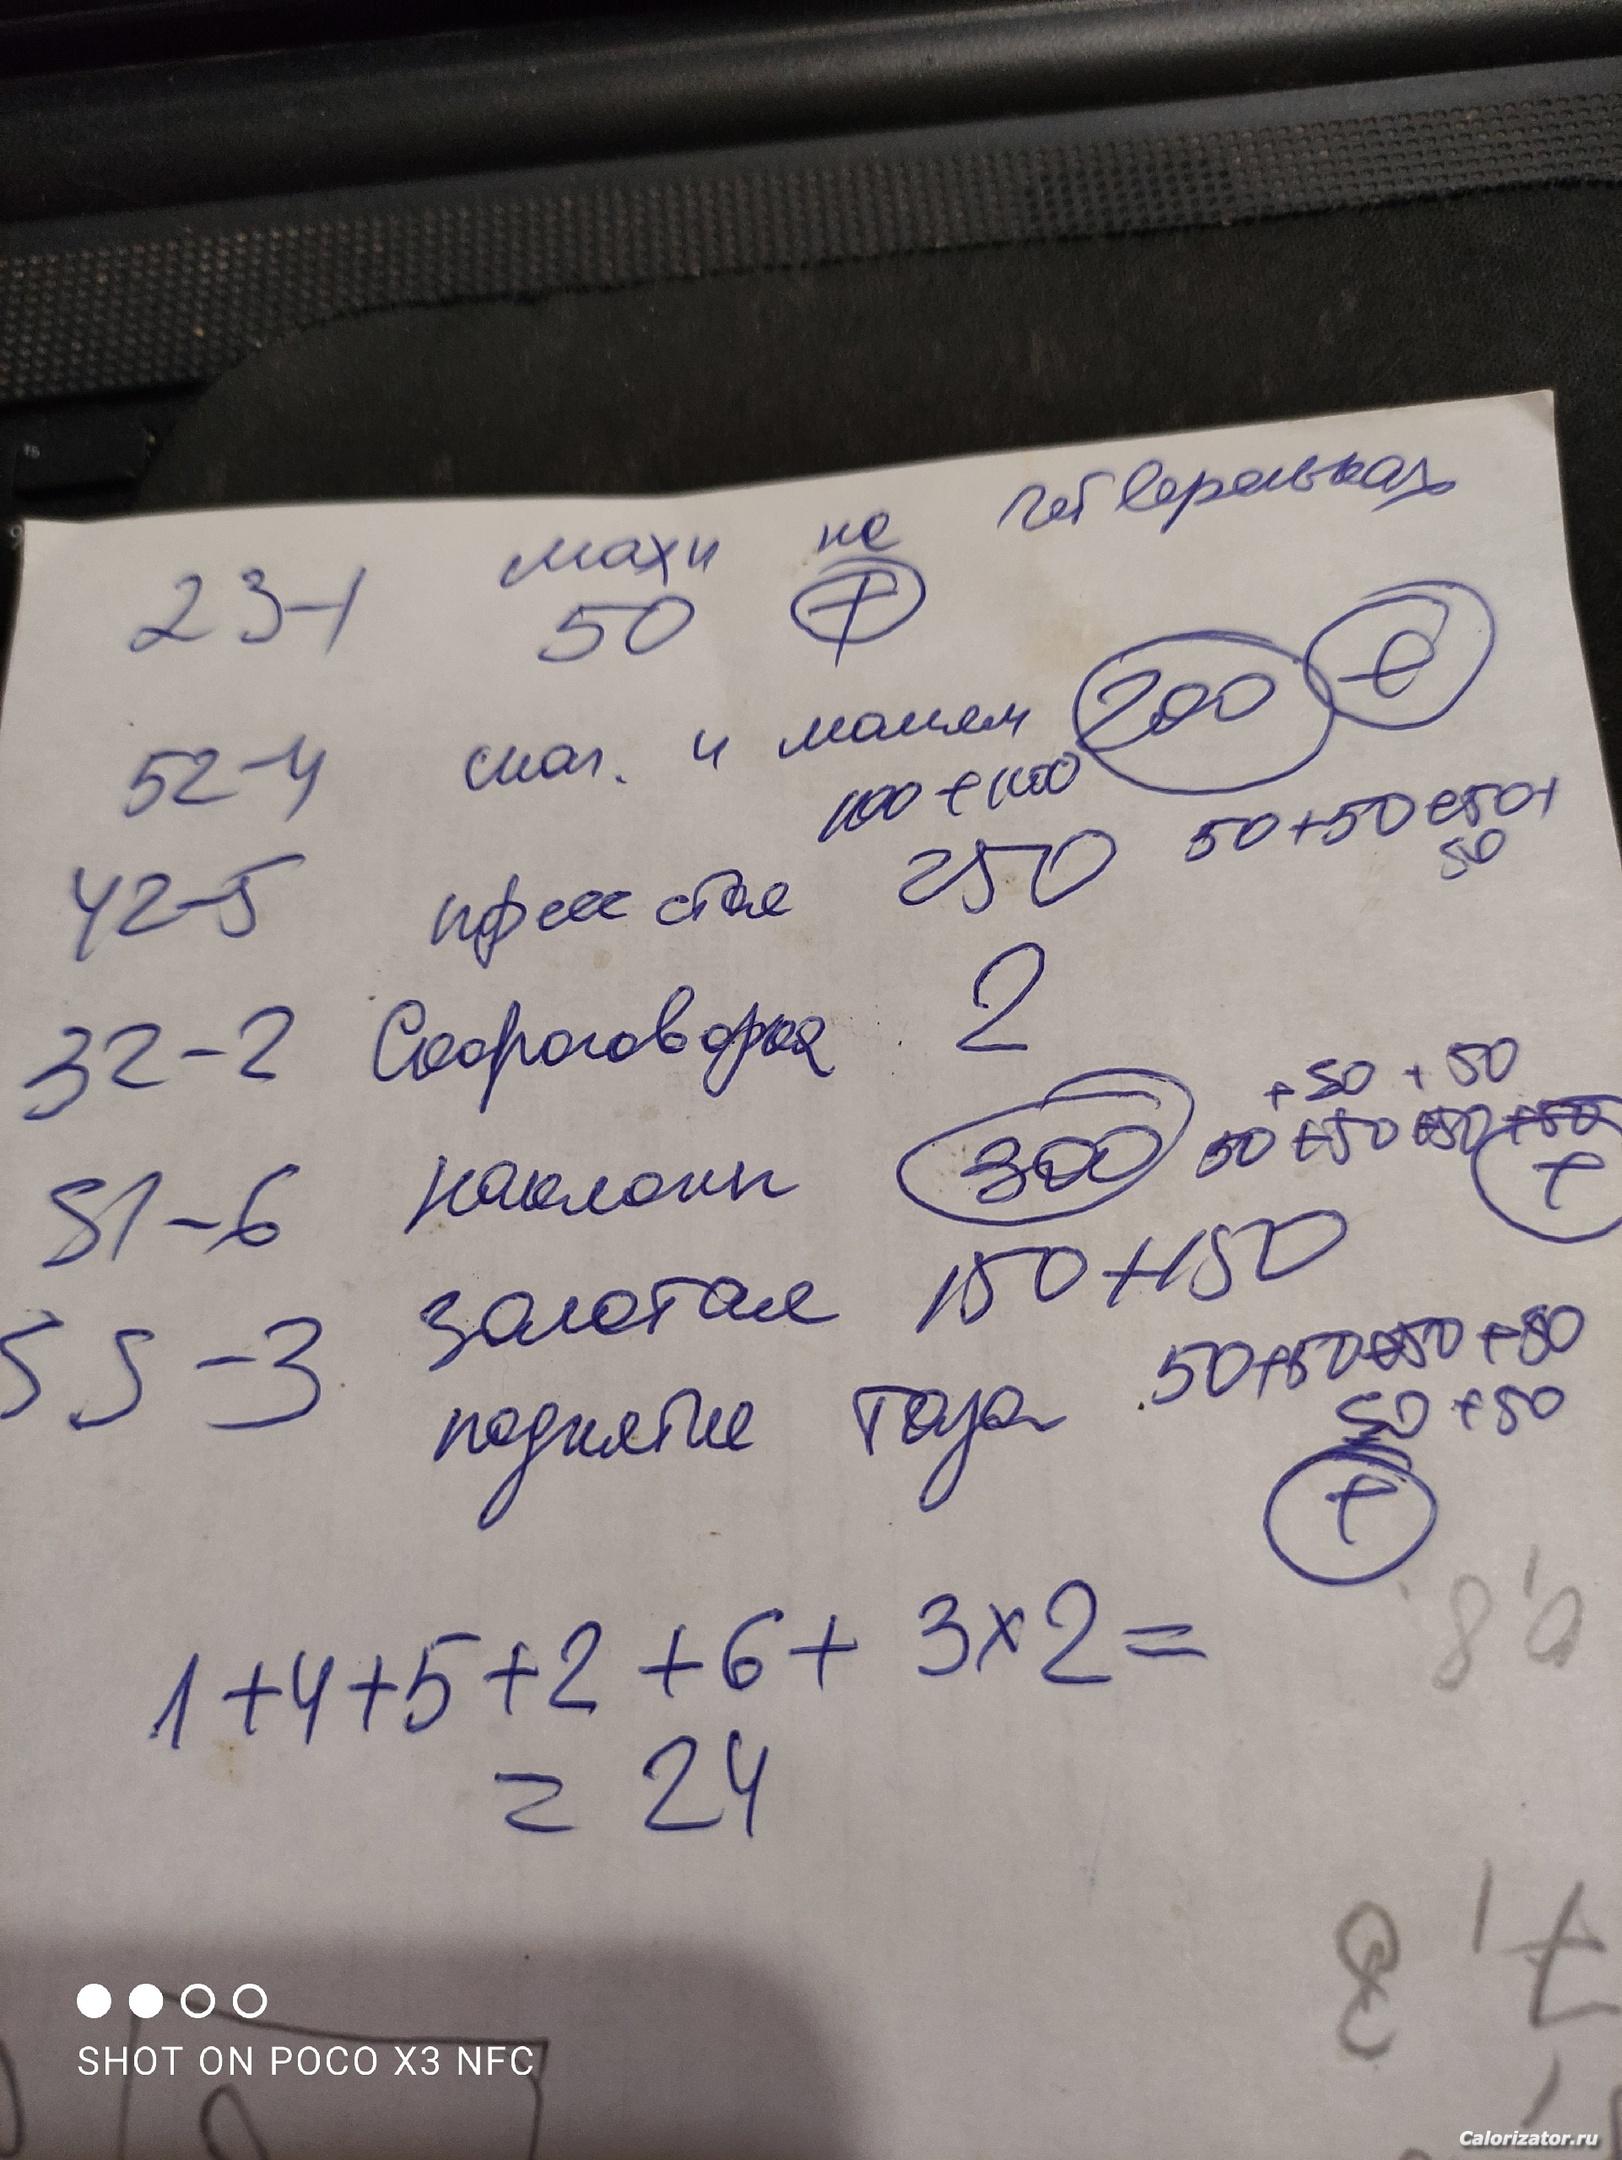 махи на четвереньках
23-1 50 +
52-4 скаг. и машем 200 +
100+100
42-5 пресс стоя 250 50+50+50+
50
32-2 Скороговорка 2
+50 +50
51-6 наклоны 300 50+50+50+50 +
55-3 золотая 150+150
поднятие таза 50+50+50+50
50+50
+
1+4+5+2+6+3×2=
= 24
SHOT ON POCO X3 NFC
Calorizator.ru